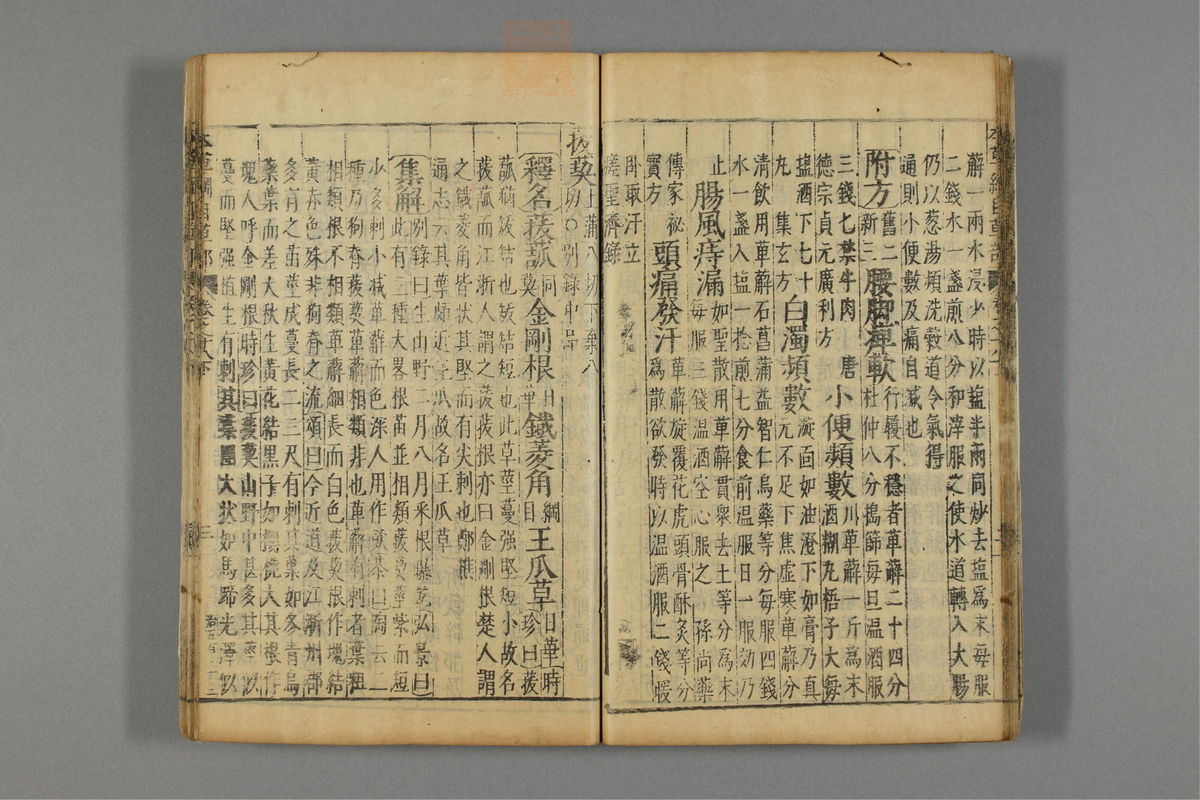 薢一兩水浸少時以鹽半兩同炒去鹽為末每服
二錢水一盞煎八分和滓服之使水道轉入大腸
仍以葱湯頻洗穀道令氣得
通則小便數及痛自減也
附方舊二新三腰脚痺軟行履不穩者萆薢二十四分杜仲八分搗篩每旦溫酒服
三錢七禁牛肉 唐德宗貞元廣利方 小便頻數川萆薢一斤為末酒糊丸梧子大每
鹽酒下七十丸 集玄方 白濁頻數漩面如油澄下如膏乃真元不足下焦虛寒萆薢分
清飲用萆薢石菖蒲益智仁烏藥等分每服四錢
水一盞入鹽一捻煎七分食前溫服日一服効乃
止 腸風痔漏如聖散用萆薢貫衆去土等分為末每服三錢溫酒空心服之 孫尚藥
傳家祕寶方 頭痛發汗萆薢旋覆花虎頭骨酥炙等分為散欲發時以溫酒服二錢暖
臥取汗立瘥聖濟錄
菝葜上蒲八切下棄八切○別錄中品
釋名菝菰同葜 金剛根日華 鐵菱角綱目 王瓜草日華 時珍曰菝
菰猶菝結也菝結短也此草莖蔓强堅短小故名
菝菰而江浙人謂之菝菝根亦曰金剛根楚人謂
之鐵菱角皆狀其堅而有尖刺也鄭樵
通志云其葉頗近王瓜故名王瓜草
集解別錄曰生山野二月八月采根曝乾弘景曰此有三種大畧根苗並相類菝葜莖紫而短
少多刺小減萆薢而色深人用作飲恭曰陶云三
種乃狗脊菝葜萆薢相類非也萆薢有刺者葉粗
相類根不相類萆薢細長而白色菝葜根作塊結
黃赤色殊非狗脊之流頌曰今近道及江浙州郡
多有之苗莖成蔓長二三尺有刺其葉如冬青烏
藥葉而差大秋生黃花結黑子如櫻桃大其根作
塊人呼金剛根時珍曰菝葜山野中甚多其莖似
蔓而堅强植生有刺其葉團大狀如馬蹄光澤似